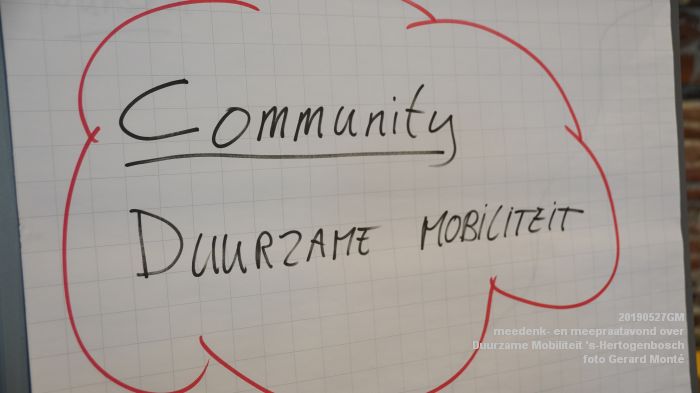 Community
DUURZAME MOBiLiTEiT
20190527GM
meedenk- en meepraatavond over
Duurzame Mobiliteit 's-Hertogenbosch
foto Gerard Monté